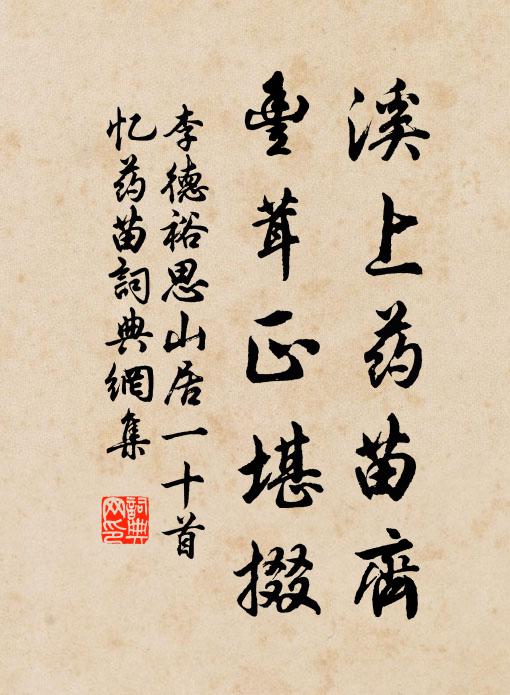 溪上药苗齊
豐茸正堪掇
李德裕思山居一十首
忆药苗詞典網集
詞典网印